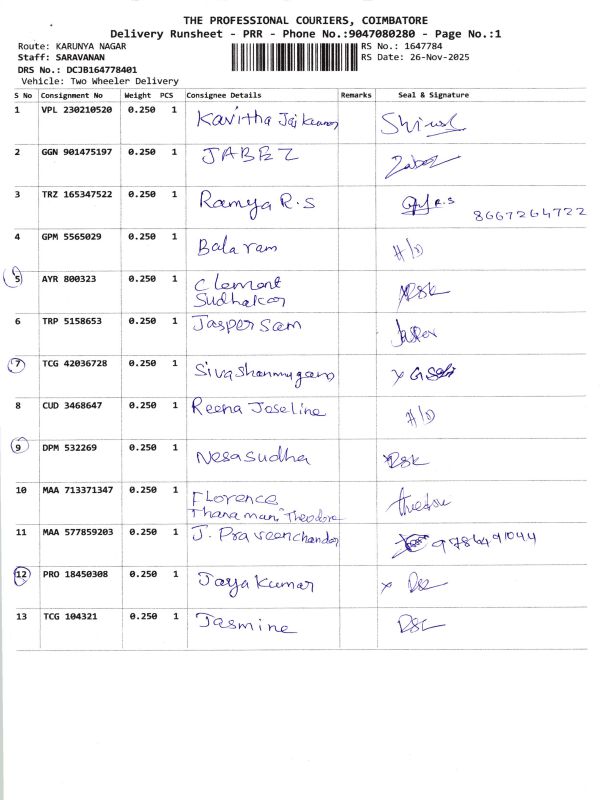 THE PROFESSIONAL COURIERS, COIMBATORE
Delivery Runsheet - PRR - Phone No.:9047080280 - Page No.:1
Route: KARUNYA NAGAR RS No.: 1647784
Staff: SARAVANAN RS Date: 26-Nov-2025
DRS No.: DCJB164778401
Vehicle: Two Wheeler Delivery
S No Consignment No Weight PCS Consignee Details Remarks Seal & Signature
1 VPL 230210520 0.250 1 Kavitha Jai Kumar
2 GGN 901475197 0.250 1 JABEZ Jabez
3 TRZ 165347522 0.250 1 Ramya R.S R.S 8667264722
4 GPM 5565029 0.250 1 Balaram H/D
5 AYR 800323 0.250 1 Clement RSK
Sudhakar
6 TRP 5158653 0.250 1 Jasper Sam Jasper
7 TCG 42036728 0.250 1 Sivashanmugam
8 CUD 3468647 0.250 1 Reena Joseline H/D
9 DPM 532269 0.250 1 Nesasudha RSK
10 MAA 713371347 0.250 1 Florence
Thanamani Theodore
11 MAA 577859203 0.250 1 J. Praveenchandar 9786491044
12 PRO 18450308 0.250 1 Jayakumar
13 TCG 104321 0.250 1 Jasmine RSK